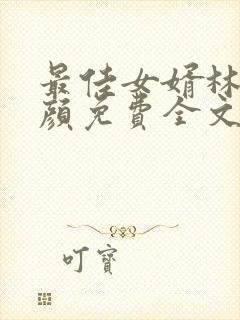 最佳女婿林
顔免費全文
叮寶